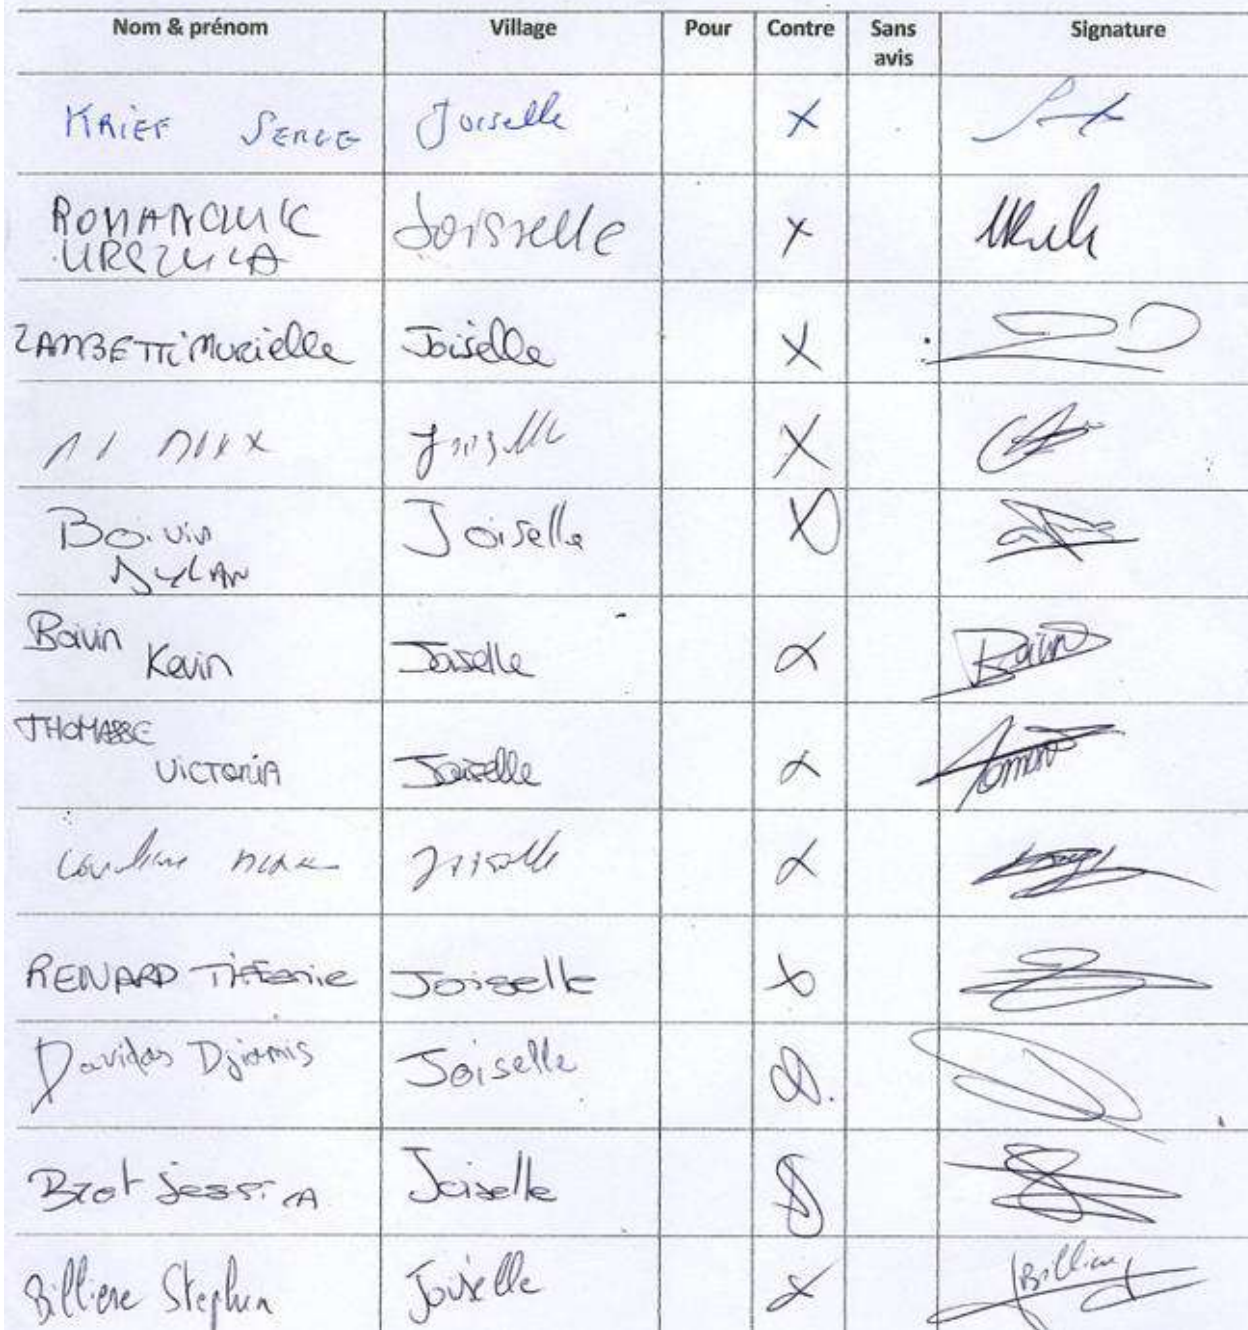 Nom & prénom Village Pour Contre Sans avis Signature
KRIEF SERGE Joiselle X
ROMANCIUK URSZULA Joisselle X
ZAMBETTI Murielle Joiselle X
Joiselle X
Boivin DYLAN Joiselle X
Boivin Kevin Joiselle X Boivin
THOMASSE VICTORIA Joiselle X
Joiselle X
RENARD Joiselle X
Davidas Djiamis Joiselle X
Brot Joiselle X
Billiere Stephen Joiselle X